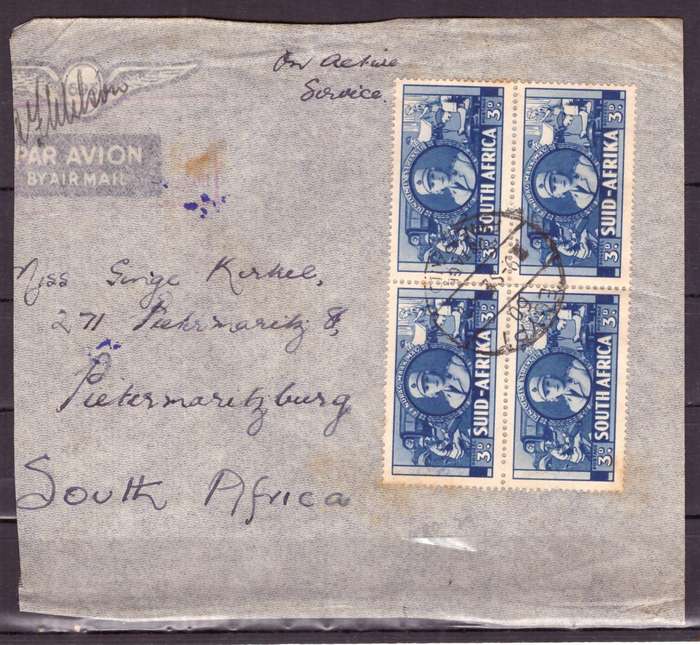 On Active
Service
Wilson
PAR AVION
BY AIR MAIL
Miss
271 Pietermaritz St,
Pietermaritzburg
South Africa
3D SOUTH AFRICA
3D SUID-AFRIKA 3D
3D SUID-AFRIKA 3D
3D SOUTH AFRICA